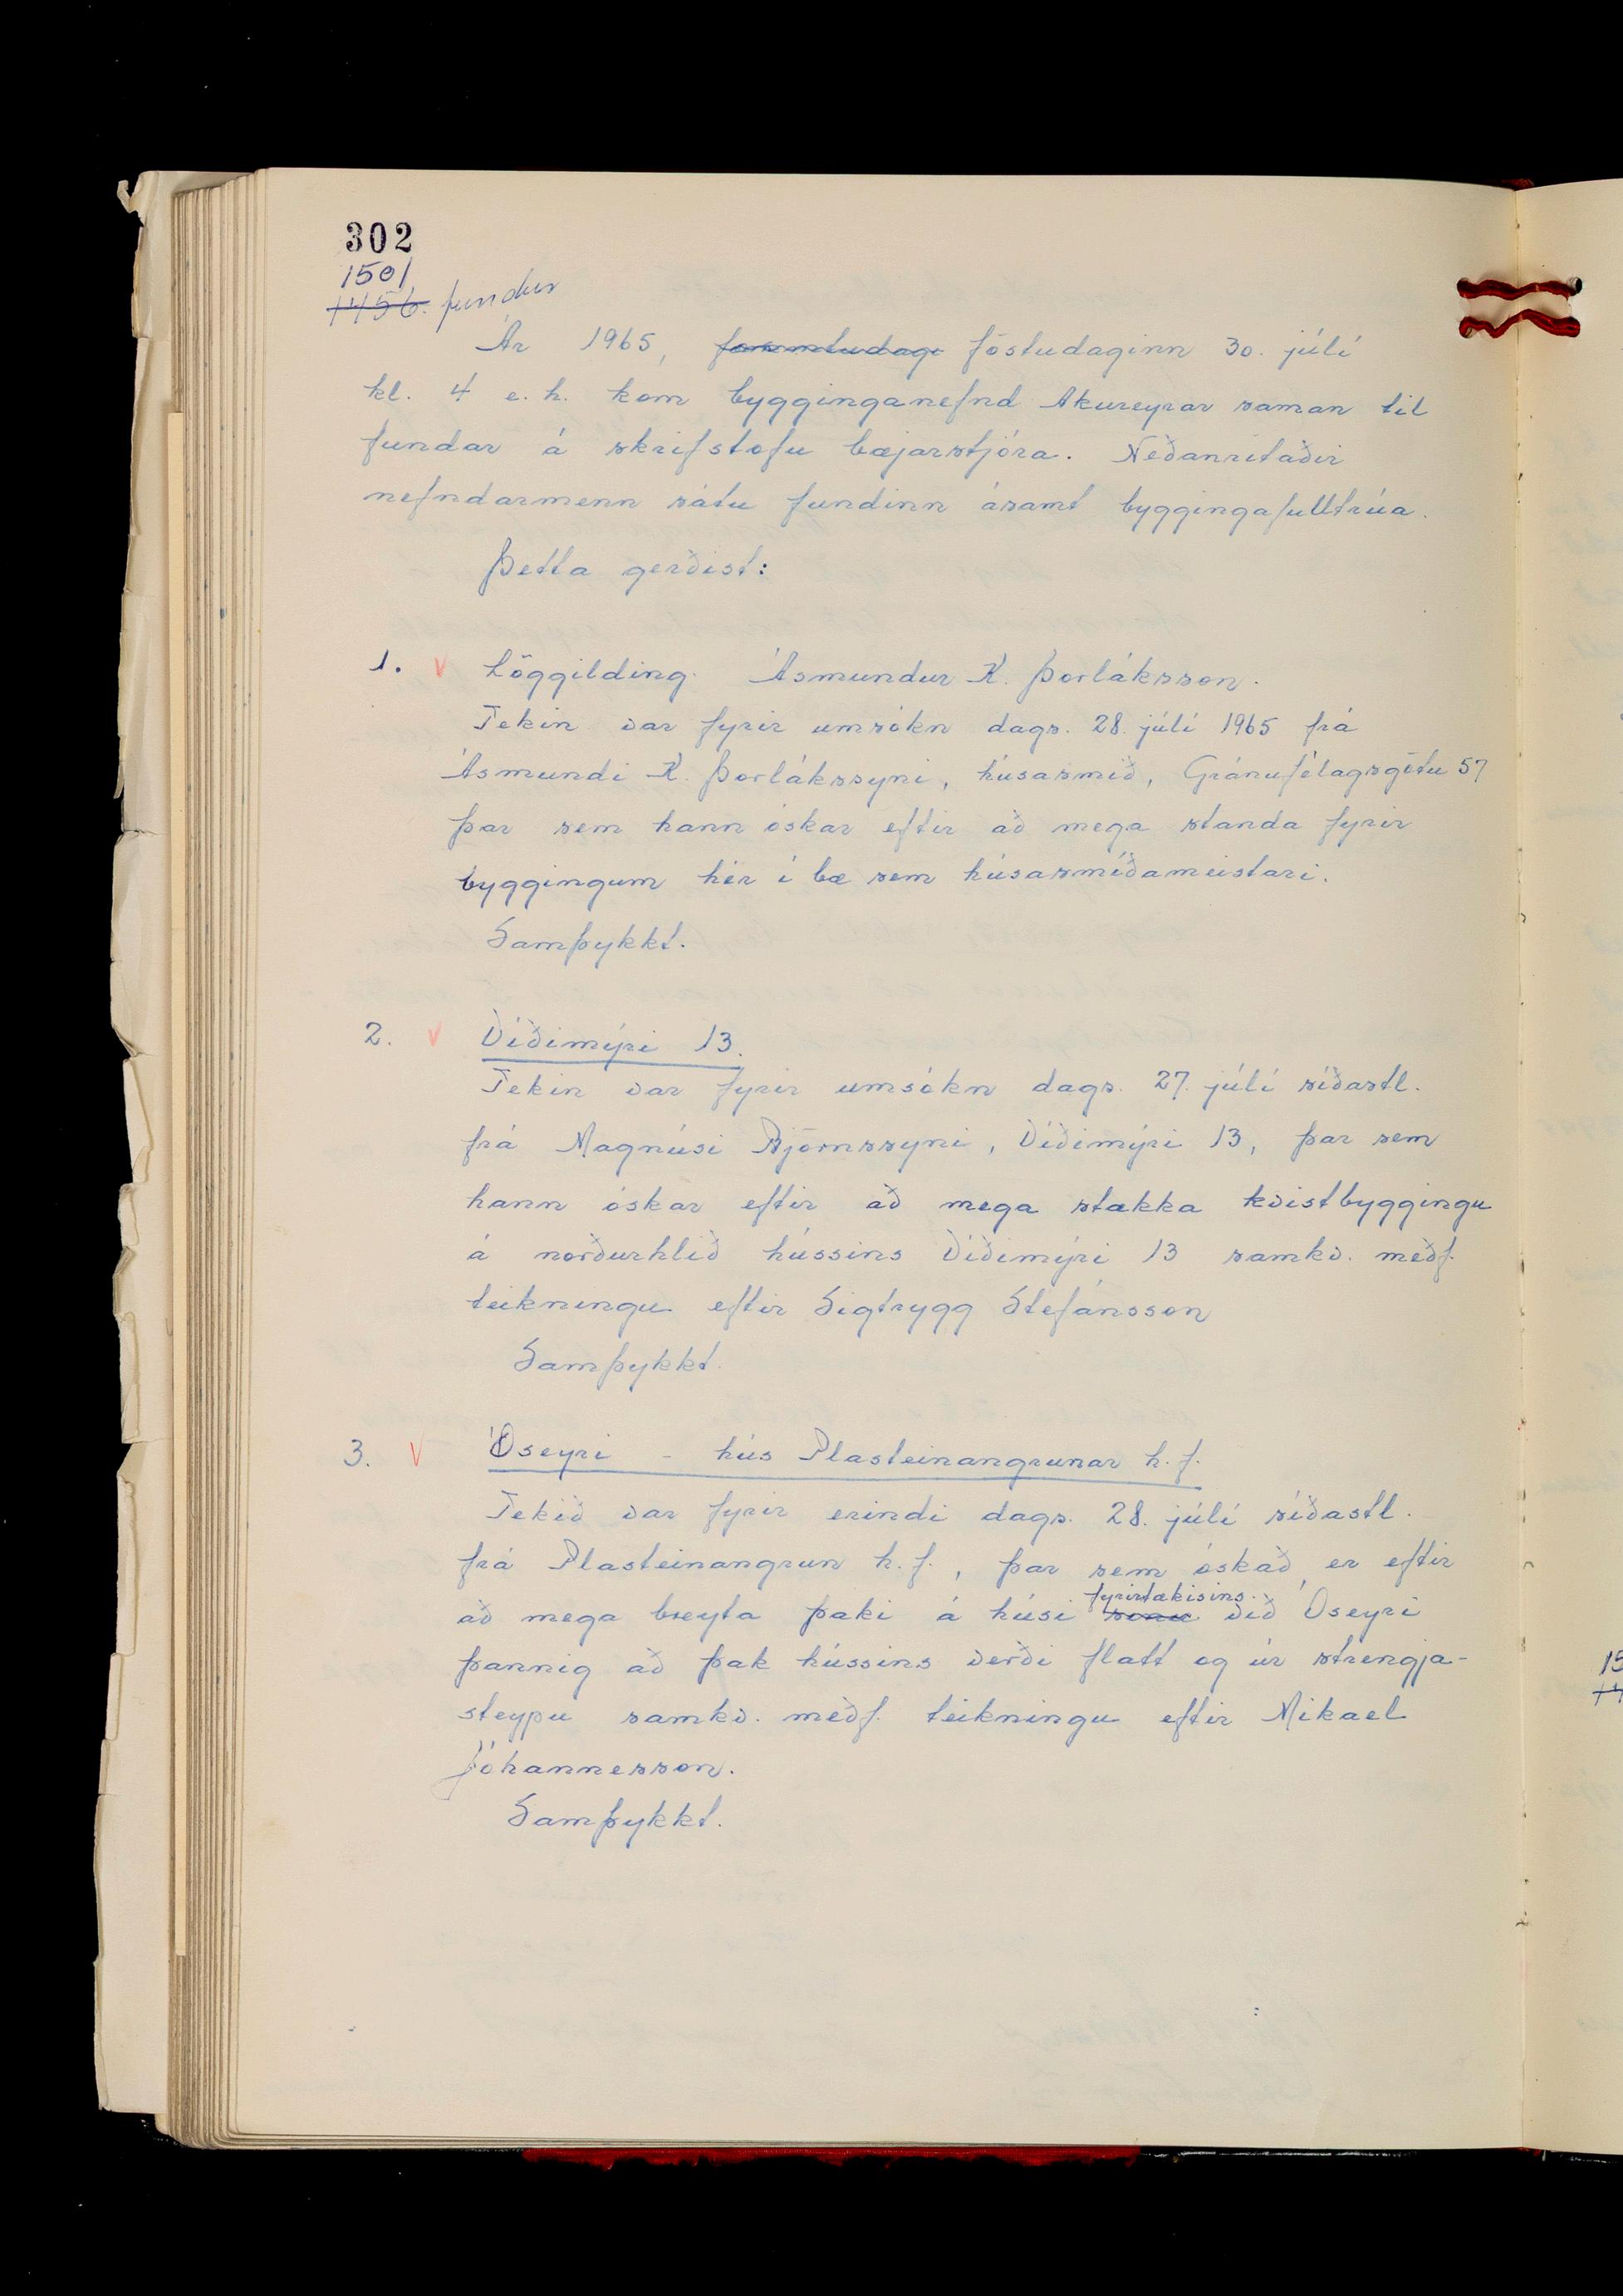 302
1501
1456. fundur
Ár 1965, fimmtudagi föstudaginn 30. júlí
kl. 4 e.h. kom bygginganefnd Akureyrar saman til
fundar á skrifstofu bæjarstjóra. Neðanritaðir
nefndarmenn sátu fundinn ásamt byggingafulltrúa.
Þetta gerðist:
1. V Löggilding. Ásmundur K. Þorláksson.
Tekin var fyrir umsókn dags. 28. júlí 1965 frá
Ásmundi K. Þorlákssyni, húsasmið, Gránufélagsgötu 57
þar sem hann óskar eftir að mega standa fyrir
byggingum hér í bæ sem húsasmíðameistari.
Samþykkt.
2. V Víðimýri 13.
Tekin var fyrir umsókn dags. 27. júlí síðastl.
frá Magnúsi Björnssyni, Víðimýri 13, þar sem
hann óskar eftir að mega stækka kvistbyggingu
á norðurhlið hússins Víðimýri 13 samkv. meðf.
teikningu eftir Sigtrygg Stefánsson
Samþykkt.
3. V Óseyri - hús Plasteinangrunar h.f.
Tekið var fyrir erindi dags. 28. júlí síðastl.
frá Plasteinangrun h.f., þar sem óskað er eftir
fyrirtækisins
að mega breyta þaki á húsi sínu við Óseyri
þannig að þak hússins verði flatt og úr strengja-
steypu samkv. meðf. teikningu eftir Mikael
Jóhannesson.
Samþykkt.